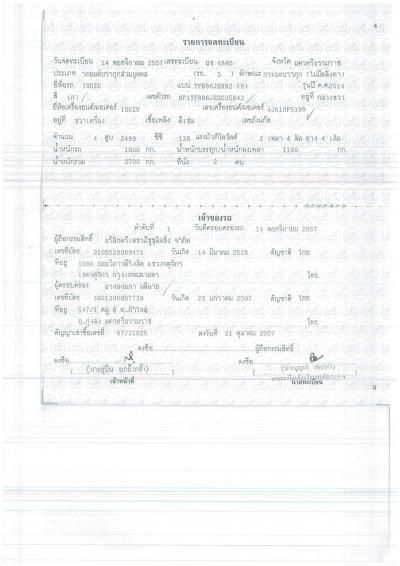 4
รายการจดทะเบียน
วันจดทะเบียน 14 พฤศจิกายน 2557 เลขทะเบียน 4860 จังหวัด นครศรีธรรมราช
ประเภท รถยนต์บรรทุกส่วนบุคคล (รย. 3 ) ลักษณะ กระบะบรรทุก (ไม่มีหลังคา)
ยี่ห้อรถ ISUZU แบบ รุ่นปี ค.ศ.2014
สี เทา เลขตัวรถ อยู่ที่ กลางขวา
ยี่ห้อเครื่องยนต์ ISUZU เลขเครื่องยนต์
อยู่ที่ ขวาเครื่อง เชื้อเพลิง ดีเซล เลขถังแก๊ส
จำนวน 4 สูบ 2499 ซีซี 136 แรงม้า 2 เพลา 4 ล้อ ยาง 4 เส้น
น้ำหนักรถ 1600 กก. น้ำหนักบรรทุก/น้ำหนักลงเพลา 1100 กก.
น้ำหนักรวม 2700 กก. ที่นั่ง 2 คน
เจ้าของรถ
ลำดับที่ 1 วันที่ครอบครองรถ 14 พฤศจิกายน 2557
ผู้ถือกรรมสิทธิ์
เลขที่บัตร 0105528009471 วันเกิด 14 มีนาคม 2528 สัญชาติ ไทย
ที่อยู่ 1088 ถนนวิภาวดีรังสิต แขวงจตุจักร
เขตจตุจักร กรุงเทพมหานคร โทร.
ผู้ครอบครอง
เลขที่บัตร 3801300657739 วันเกิด 20 มกราคม 2507 สัญชาติ ไทย
ที่อยู่ 147/1 หมู่ 6
นครศรีธรรมราช โทร.
สัญญาเช่าซื้อเลขที่ 07/31025 ลงวันที่ 21 ตุลาคม 2557
ลงชื่อ ผู้ถือกรรมสิทธิ์
ลงชื่อ ลงชื่อ
เจ้าหน้าที่ นายทะเบียน
5